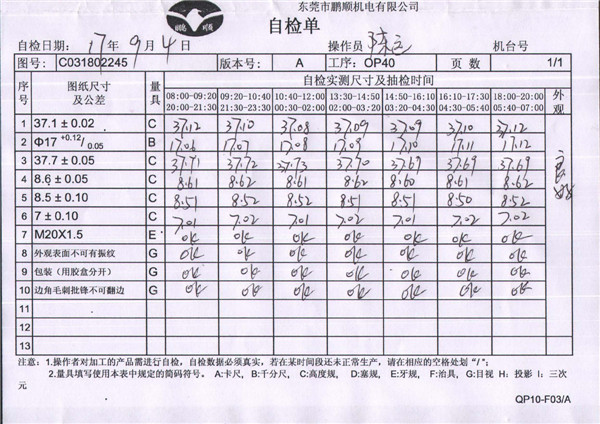 东莞市鹏顺机电有限公司
鹏 顺
自检单
自检日期: 17年 9月 4日 操作员 机台号
图号: C031802245 版本号: A 工序: OP40 页 数 1/1
序号 图纸尺寸及公差 量具 自检实测尺寸及抽检时间 外观
08:00-09:20 09:20-10:40 10:40-12:00 13:30-14:50 14:50-16:10 16:10-17:30 18:00-20:00
20:00-21:30 21:30-23:30 00:30-02:00 02:00-03:20 03:20-04:30 04:30-05:40 05:40-07:00
1 37.1 ± 0.02 C 37.12 37.10 37.08 37.09 37.09 37.10 37.12 良好
2 Φ17 +0.12/0.05 B 17.06 17.07 17.08 17.09 17.10 17.11 17.12
3 37.7 ± 0.05 C 37.71 37.72 37.73 37.70 37.69 37.69 37.69
4 8.6 ± 0.05 C 8.61 8.62 8.61 8.62 8.60 8.61 8.62
5 8.5 ± 0.10 C 8.51 8.52 8.52 8.51 8.51 8.50 8.52
6 7 ± 0.10 C 7.01 7.02 7.01 7.02 7.01 7.02 7.02
7 M20X1.5 E OK OK OK OK OK OK OK
8 外观表面不可有振纹 G OK OK OK OK OK OK OK
9 包装（用胶盒分开） G OK OK OK OK OK OK OK
10 边角毛刺批锋不可翻边 G OK OK OK OK OK OK OK
11
12
13
注意: 1.操作者对加工的产品需进行自检，自检数据必须真实，若在某时间段还未正常生产，请在相应的空格处划“/”;
2.量具填写使用本表中规定的简码符号。 A:卡尺, B:千分尺, C:高度规, D:塞规, E:牙规, F:治具, G:目视 H: 投影 I: 三次
元
QP10-F03/A